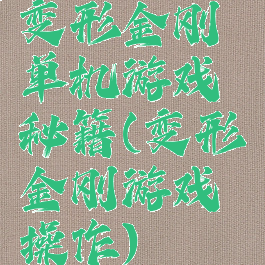 变形金刚
单机游戏
秘籍(变形
金刚游戏
操作)